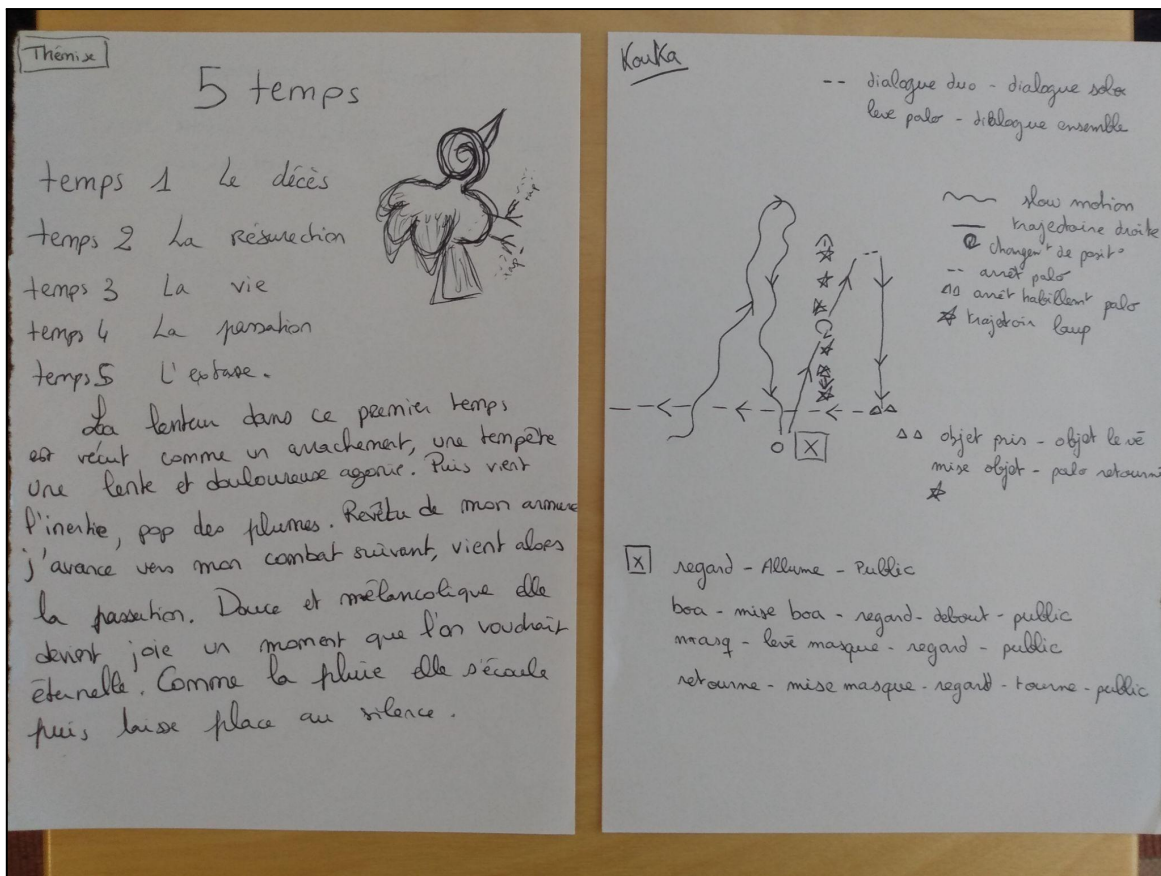 Thémise
5 temps
temps 1 Le décès
temps 2 La Résurection
temps 3 La vie
temps 4 La passation
temps 5 L'extase.
La lenteur dans ce premier temps
est vécut comme un arrachement, une tempète
une lente et douloureuse agonie. Puis vient
l'inertie, pop des plumes. Revêtu de mon armure
j'avance vers mon combat suivant, vient alors
la passation. Douce et mélancolique elle
devient joie un moment que l'on voudrait
éternelle. Comme la pluie elle s'écoule
puis laisse place au silence.
KouKa
-- dialogue duo - dialogue solo
levé palo - dialogue ensemble
slow motion
trajectoire droite
changemt de posit°
-- arrêt palo
arrêt habillent palo
trajetoir loup
objet pris - objet levé
mise objet - palo retourné
X
X regard - Allume - Public
boa - mise boa - regard - debout - public
masq - levé masque - regard - public
retourne - mise masque - regard - tourne - public